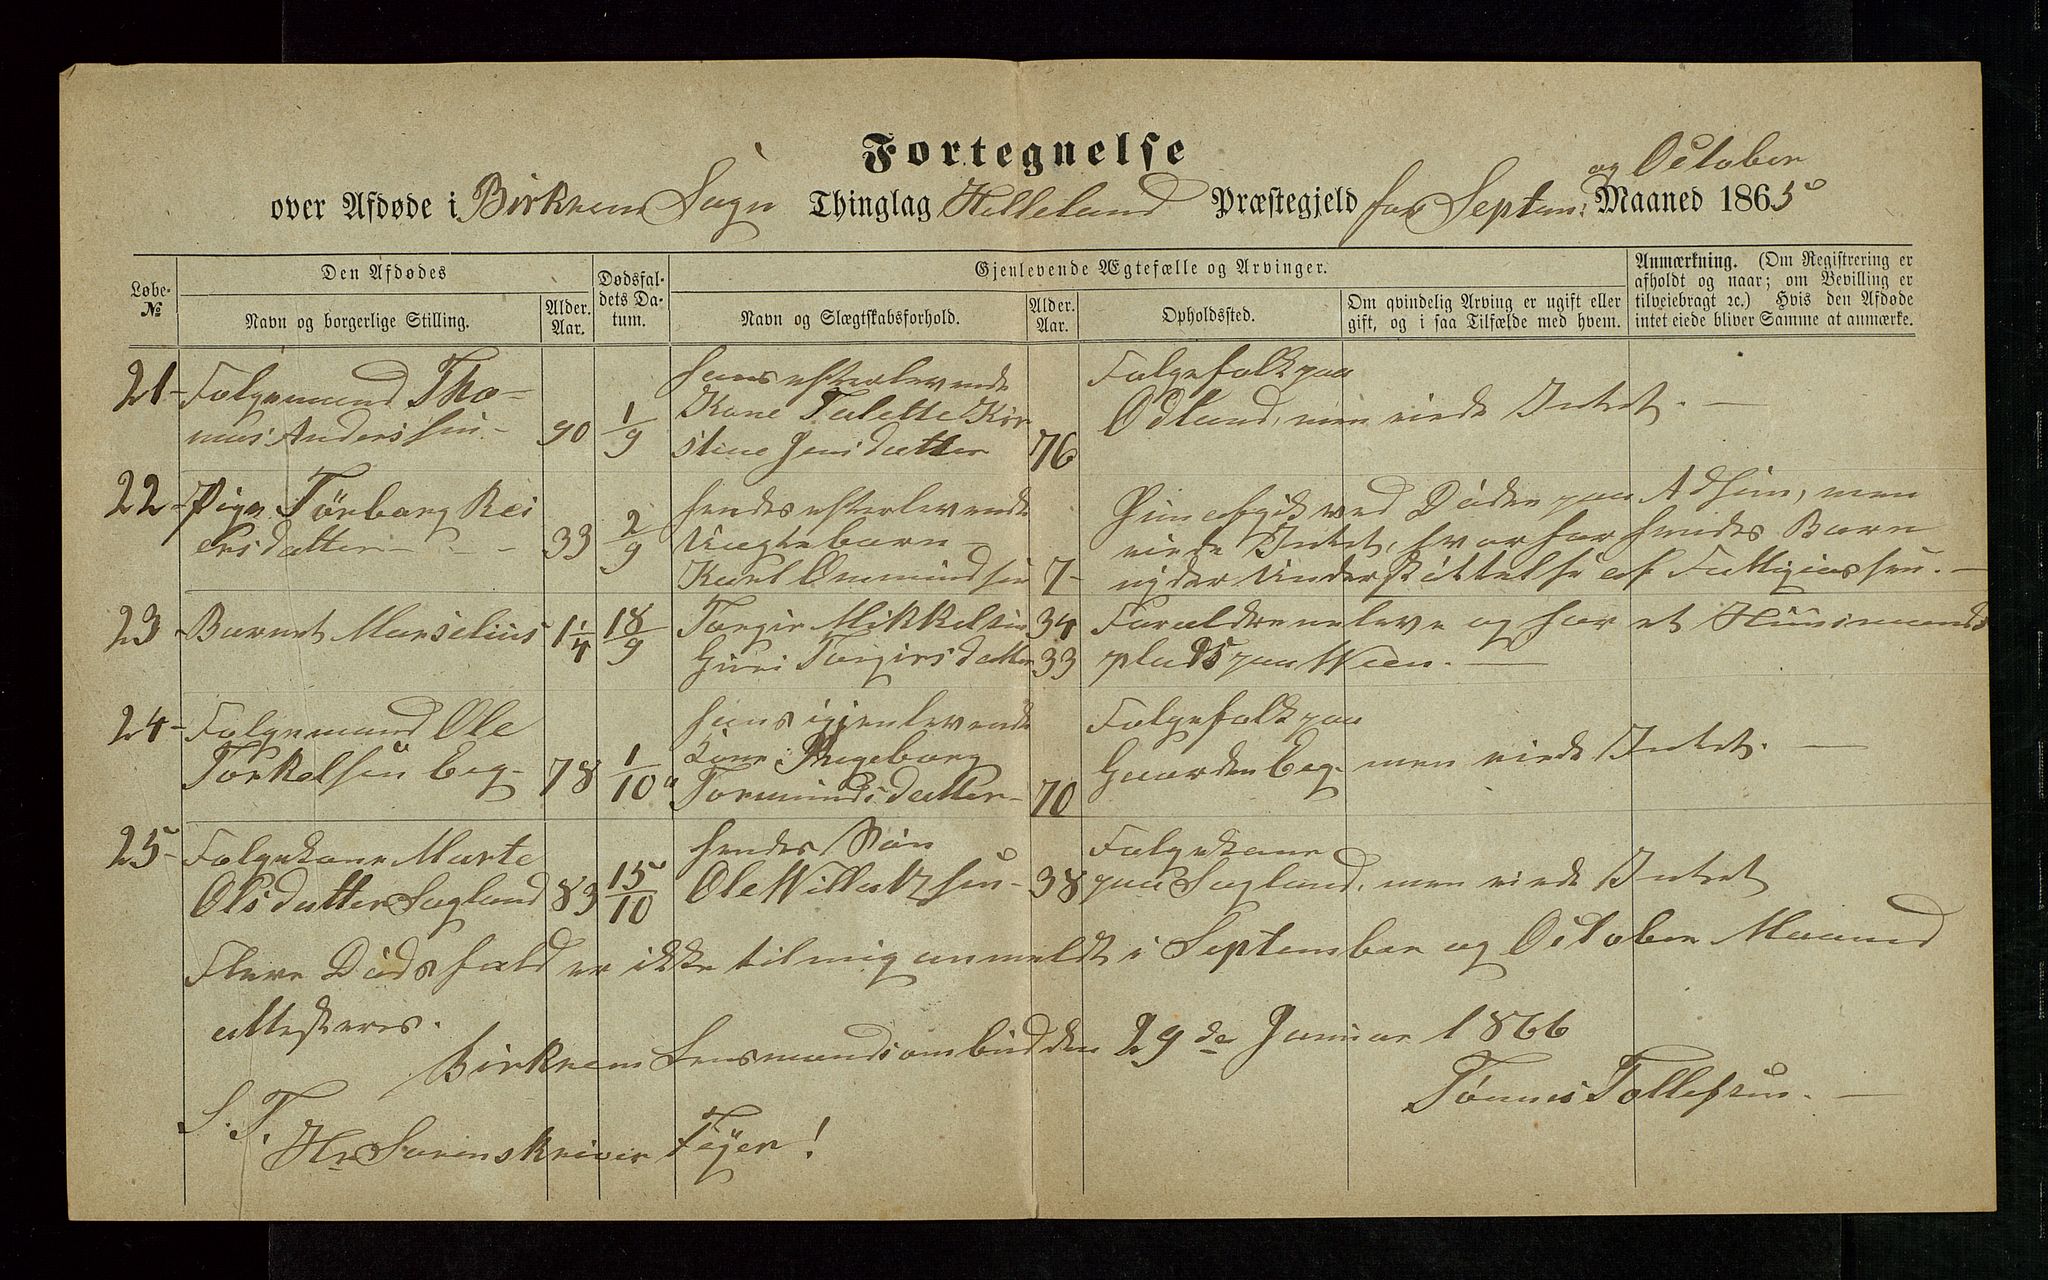 Fortegnelse
og October
over Afdøde i Birkrem Sogn Thinglag Helleland Præstegjeld for Septem: Maaned 1865
Løbe-№
Den Afdødes
Navn og borgerlige Stilling.
Alder. Aar.
Dødsfaldets Datum.
Gjenlevende Ægtefælle og Arvinger.
Navn og Slægtskabsforhold.
Alder. Aar.
Opholdssted.
Om qvindelig Arving er ugift eller
gift, og i saa Tilfælde med hvem.
Anmærkning. (Om Registrering er
afholdt og naar; om Bevilling er
tilveiebragt ꝛc.) Hvis den Afdøde
intet eiede bliver Samme at anmærke.
21- Folgemand Tho-
mas Anderssen- 90 1/9
hans efterlevende
Kone Talette Kir
stine Jensdatter 76
Folgefolk paa
Odland, men eiede Intet. —
22- Pige Tørborg Rei
ersdatter - - - 33 2/9
hendes efterlevende
Uægtebarn -
Karl Ommundsen 7-
Hun afgik ved Døden paa Adsen, men
eiede Intet, hvorfor hendes Barn
nyder Understøttelse af Fattigvæsen. —
23- Barnet Marselius 1 1/4 18/9
Torgir Mikkelsen 34
Guri Torgirsdatter 33
Forældrene leve og har et Huusmands
plads paa Veen. —
24- Folgemand Ole
Torkelsen Eeg- 78 1/10
hans igjenlevende
Kone: Ingeborg
Tormundsdatter- 70
Folgefolk paa
Gaarden Eeg- men eiede Intet. —
25- Folgekone Marte
Olsdatter Sagland 83 15/10
hendes Søn
Ole Villatzsen- 38
Folgekone
paa Sagland, men eiede Intet
Flere Dødsfald er ikke til mig anmeldt i September og October Maaned
attesteres.
Birkrem Lensmandsombud den 29de Januar 1866
Tønnes Tollefsen. —
S. T.
Hr Sorenskriver Feyer!